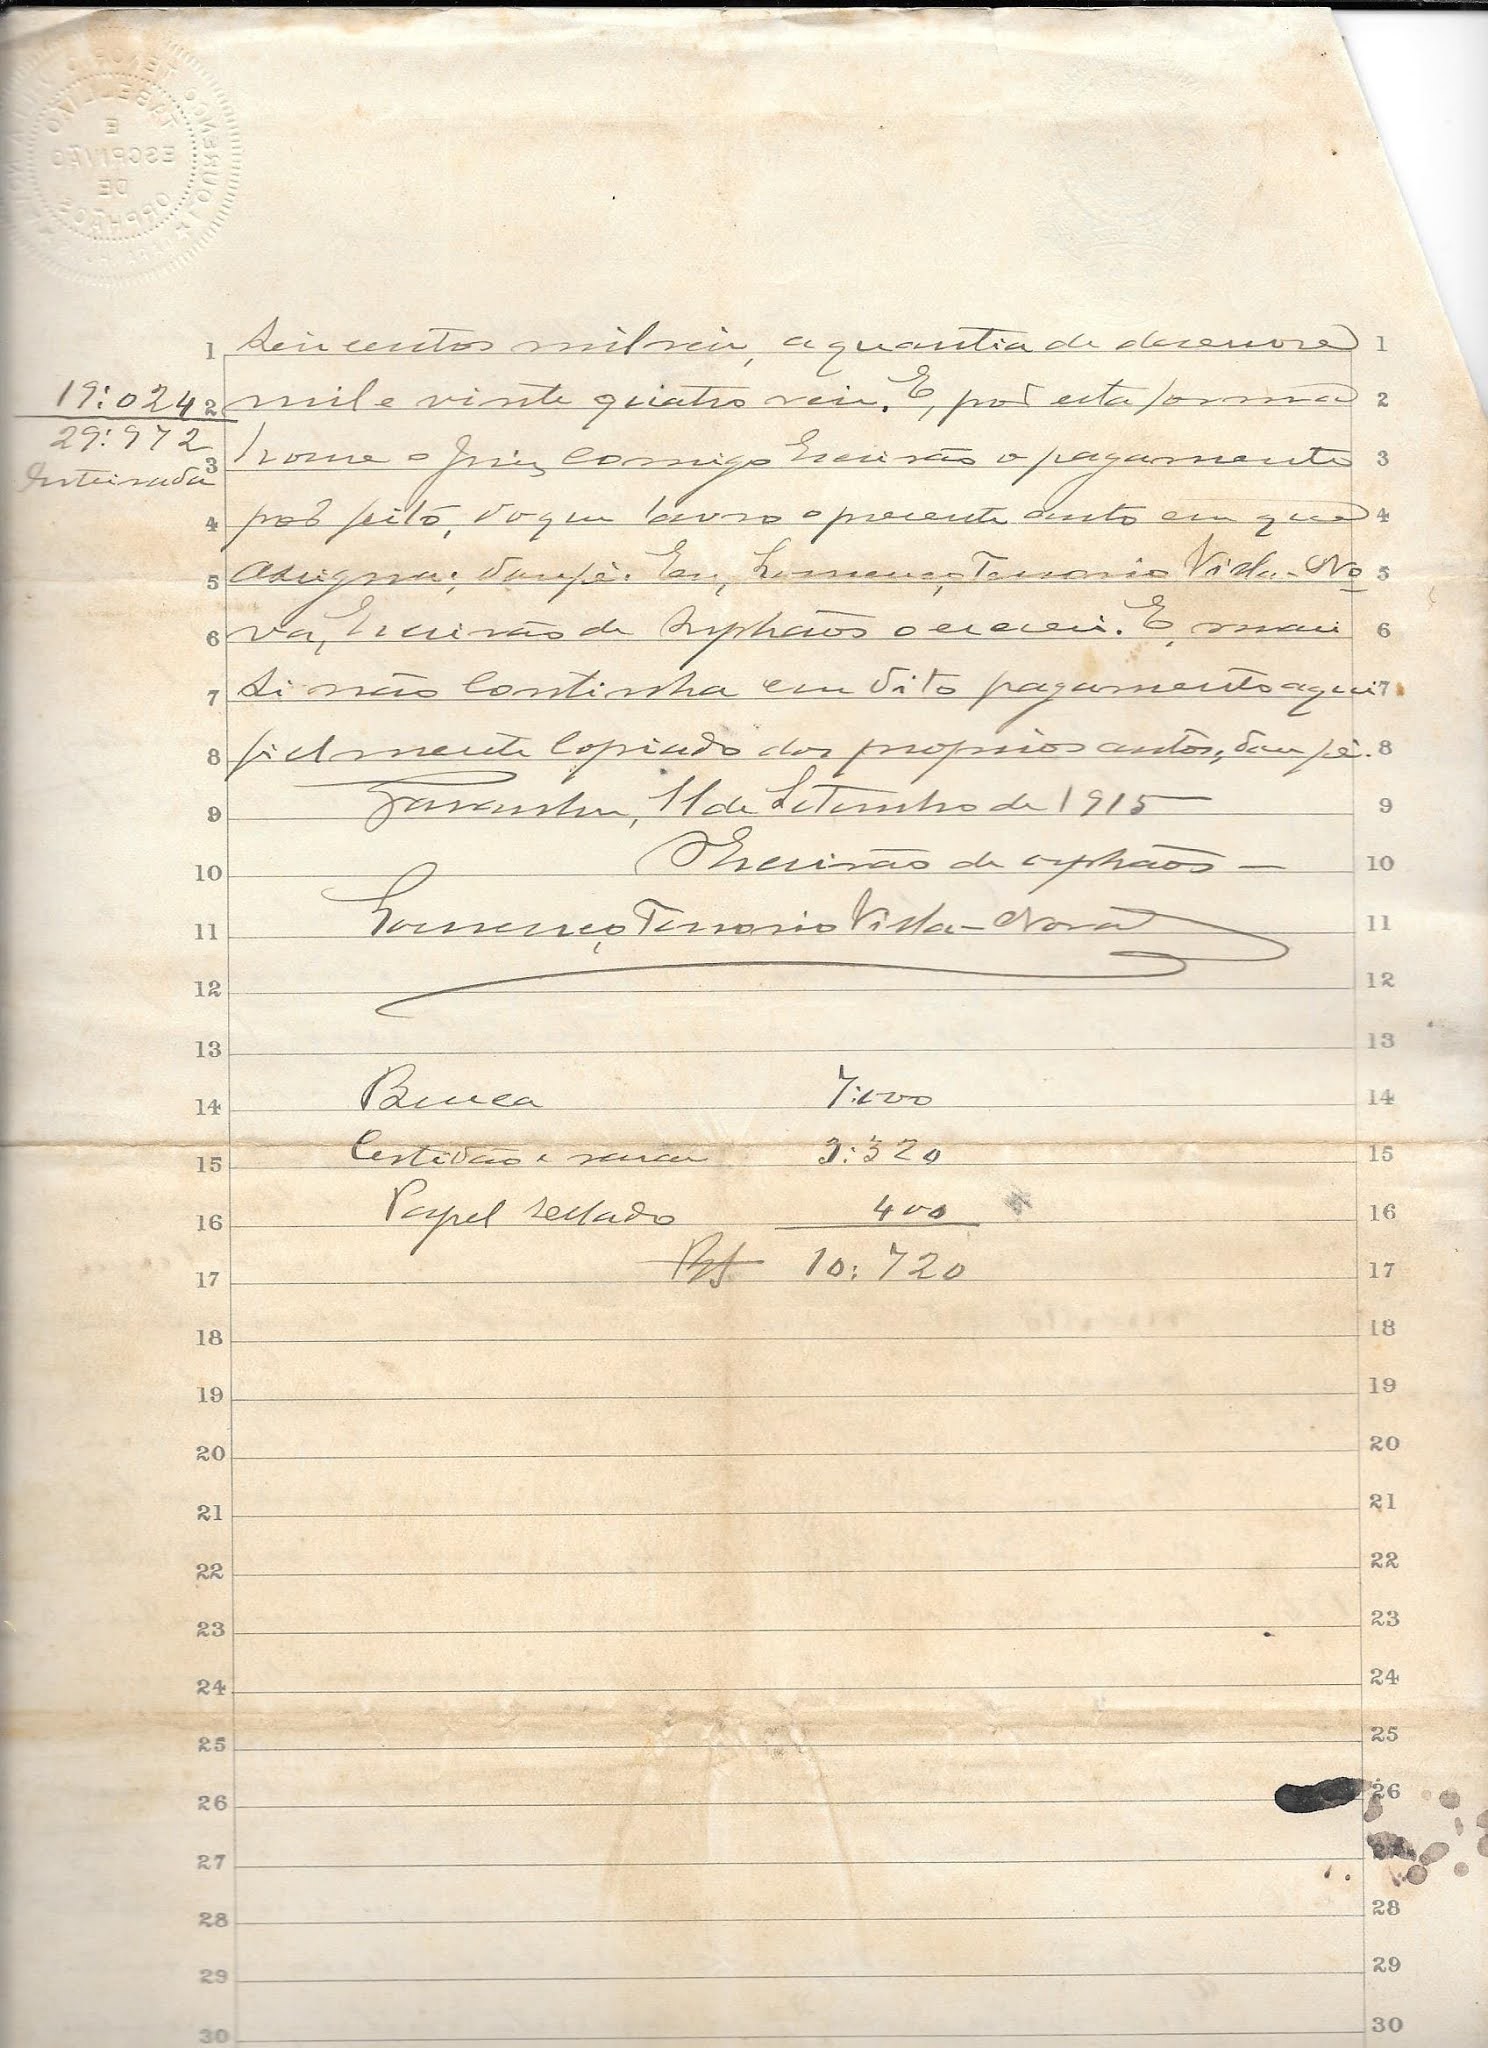 LOURENÇO TENORIO VILLA NOVA
TABELLIÃO
E
ESCRIVÃO
DE
ORPHÃOS
1 Seiscentos mil reis, a quantia de desenove 1
19:024 2 mil e vinte quatro reis. E, por esta forma 2
29:972
Inteirada
3 houve o Juiz comigo Escrivão o pagamento 3
4 por feito, do que lavro o presente auto em que 4
5 assigna; dou fé. Eu, Lourenço Tenorio Villa-No- 5
6 va, Escrivão de Orphãos o escrevi. E, mais 6
7 si não continha em dito pagamento aqui 7
8 fielmente copiado dos proprios autos, dou fé. 8
9 Garanhuns, 11 de Setembro de 1915 9
10 O Escrivão de orphãos – 10
11 Lourenço Tenorio Villa-Nova 11
12 12
13 13
14 Busca 7:000 14
15 Certidão e 3:320 15
16 Papel sellado 400 16
17 Rs 10:720 17
18 18
19 19
20 20
21 21
22 22
23 23
24 24
25 25
26 26
27
28 28
29 29
30 30